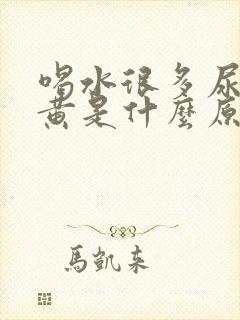 喝水很多尿
黄是什麼原
馬凱来